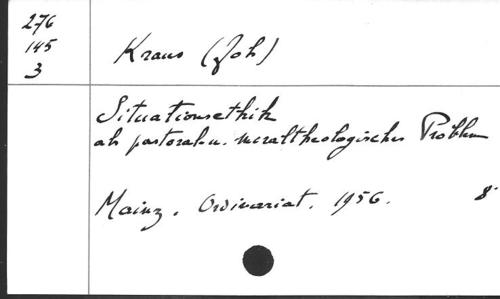 276
145
3
Kraus (Joh)
Situationsethik
als pastoral u. moraltheologisches Problem
Mainz. Ordinariat. 1956. 8°